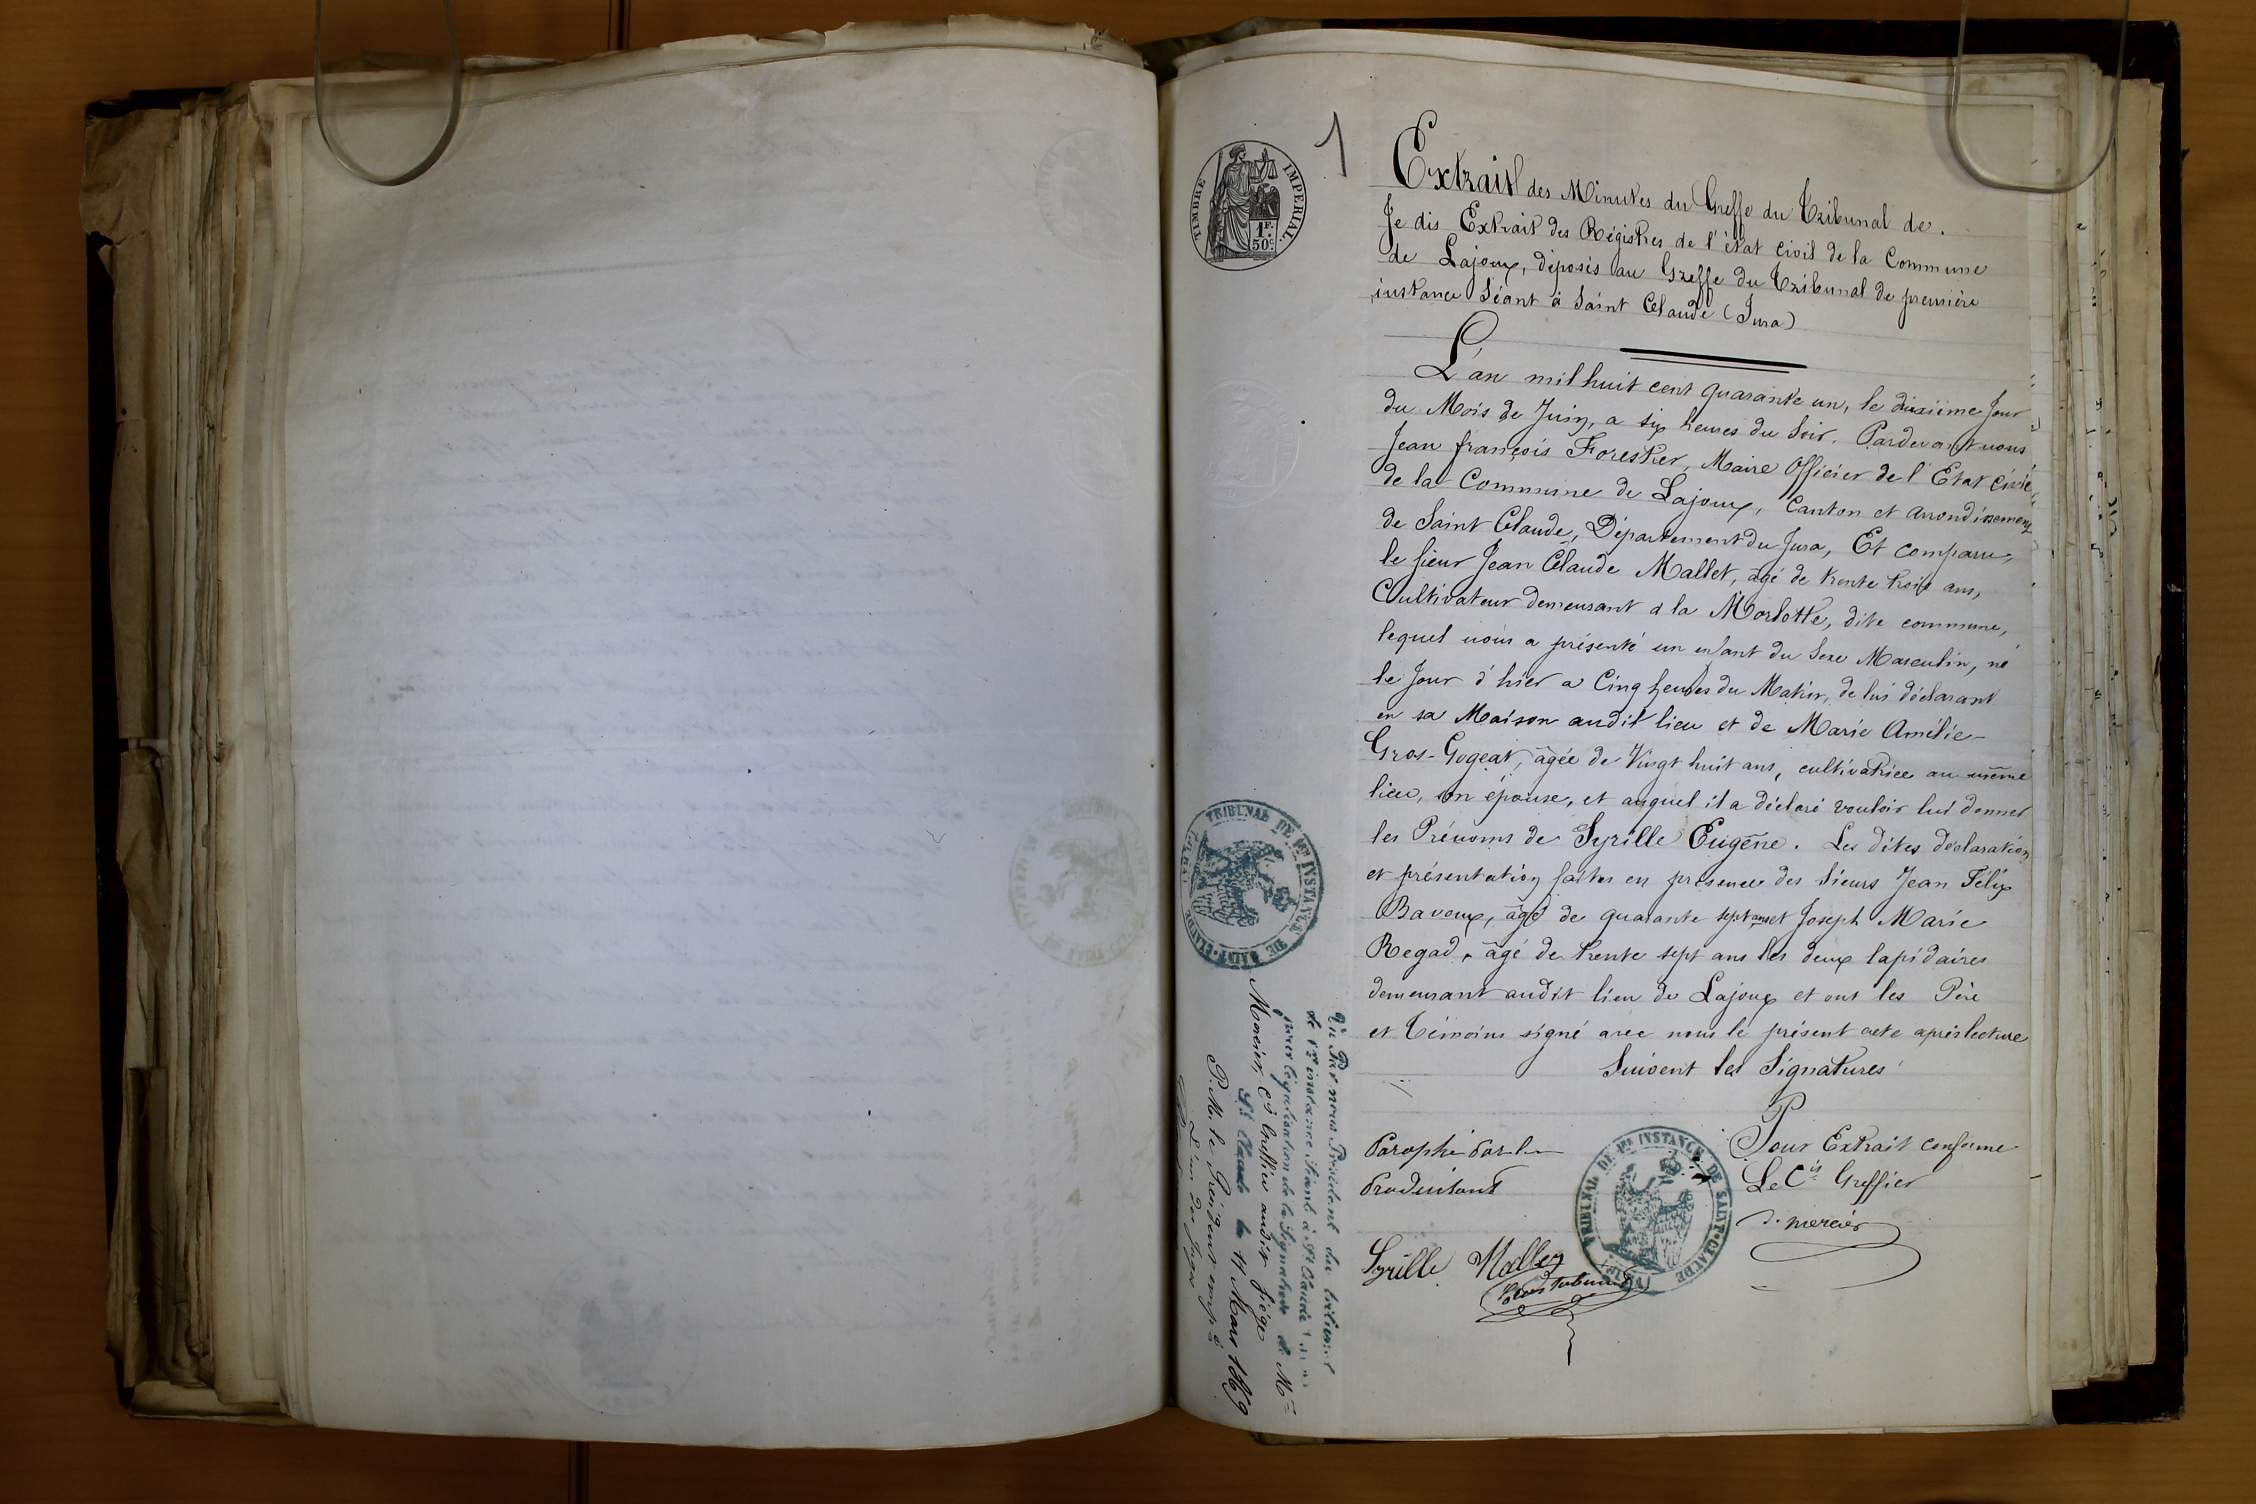 1
TIMBRE IMPERIAL
1F.
50c
Extrait des Minutes du Greffe du Tribunal de.
Je dis Extrait des Régistres de l'état civil de la Commune
de Lajoux, déposés au Greffe du Tribunal de première
instance Séant à Saint Claude (Jura)
L'an mil huit cent quarante un, le dixiième Jour
du Mois de Juin, a six heures du Soir. Pardevant nous
Jean françois Forestier, Maire Officier de l'Etat Civil
de la Commune de Lajoux, Canton et arrondissement
de Saint Claude, Département du Jura, Et comparu,
le sieur Jean Claude Mallet, âgé de trente trois ans,
Cultivateur demeurant a la Morlotte, dite commune,
lequel nous a présenté un enfant du Sexe Masculin, né
le Jour d'hier a Cinq heures du Matin, de lui déclarant
en sa Maison audit lieu et de Marie Amélie-
Gros-Gogeat, âgée de Vingt huit ans, cultivatrice au même
lieu, son épouse, et auquel il a déclaré vouloir lui donner
les Prénoms de Syrille Eugène. Les dites déclaration
et présentation faites en présence des Sieurs Jean Félix
Bavoux, âgé de quarante sept ans et Joseph Marie
Regad, âgé de trente sept ans les deux lapidaires
demeurant audit lieu de Lajoux et ont les Père
et Témoins signé avec nous le présent acte après lecture
Suivent les Signatures
Pour Extrait conforme
Le Cis Greffier
J. Mercier
Paraphé par le
Produisant
Syrille Mallet
TRIBUNAL DE 1ère INSTANCE DE SAINT-CLAUDE
TRIBUNAL DE 1ère INSTANCE DE SAINT-CLAUDE
(JURA)
Vu Par nous Président du tribunal
de 1re instance Séant à St Claude
pour légalisation de la Signature de Mr
Mercier, Cis Greffier audit Siége
St Claude le 11 Mars 1869
P. M. le Président empé
L'un des Juges